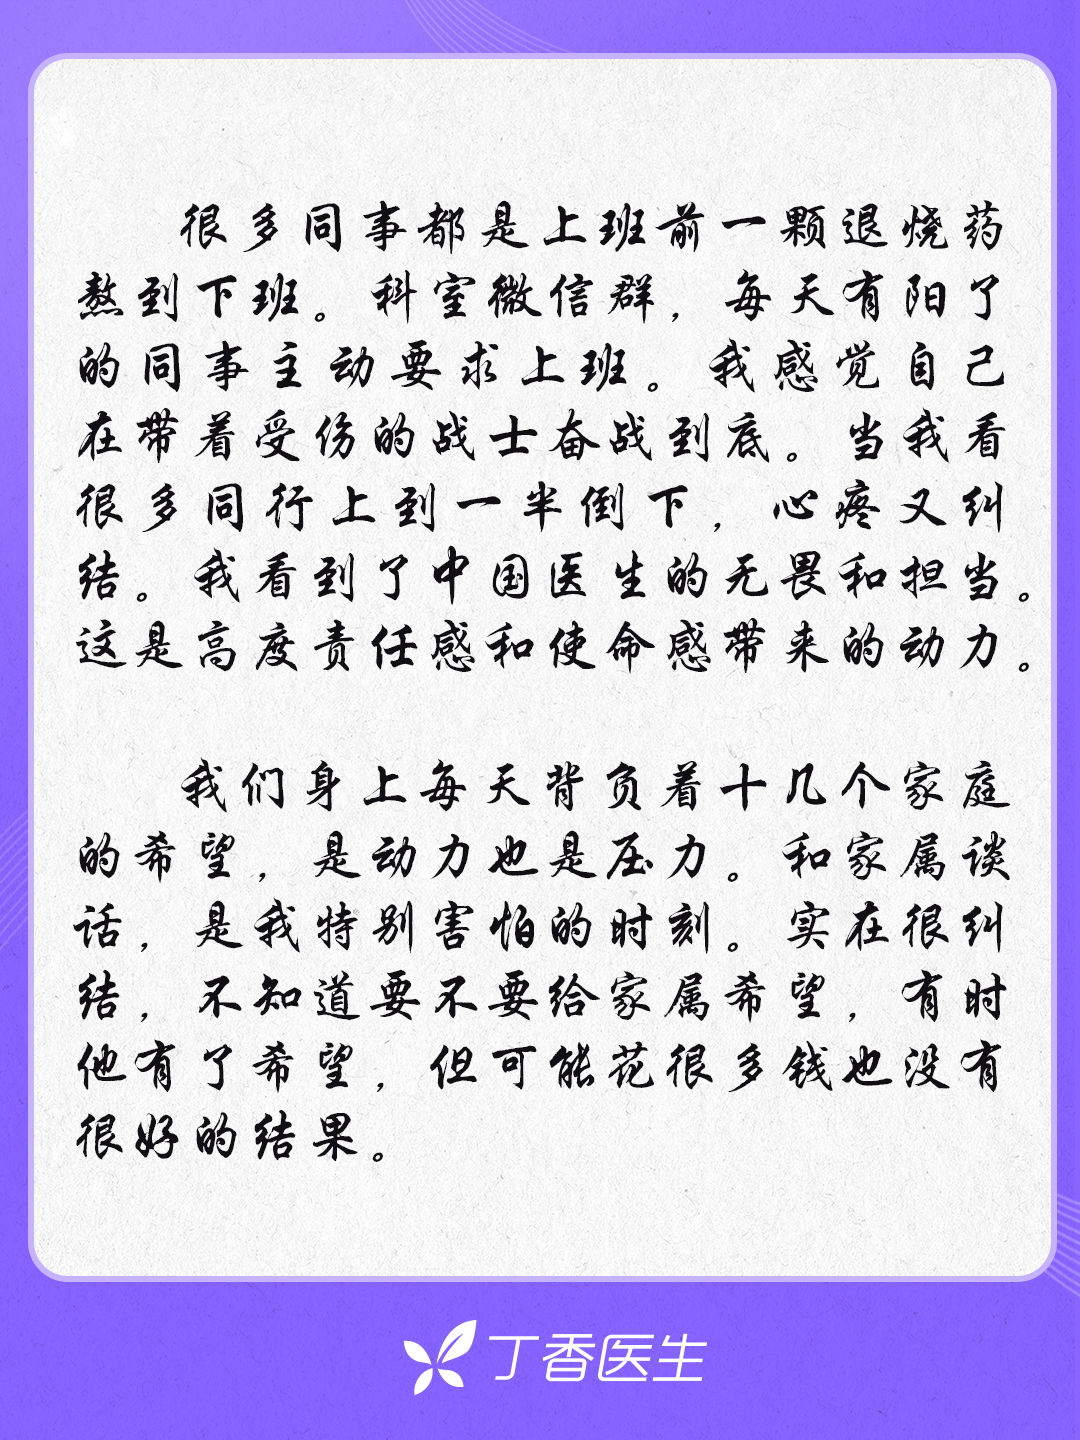 很多同事都是上班前一颗退烧药
熬到下班。科室微信群，每天有阳了
的同事主动要求上班。我感觉自己
在带着受伤的战士奋战到底。当我看
很多同行上到一半倒下，心疼又纠
结。我看到了中国医生的无畏和担当。
这是高度责任感和使命感带来的动力。
我们身上每天背负着十几个家庭
的希望，是动力也是压力。和家属谈
话，是我特别害怕的时刻。实在很纠
结，不知道要不要给家属希望，有时
他有了希望，但可能花很多钱也没有
很好的结果。
丁香医生